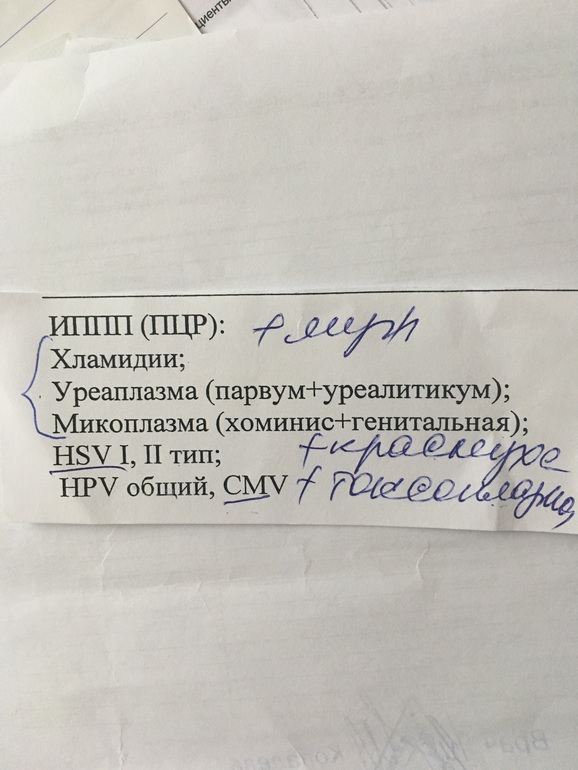 циенты
ИППП (ПЦР):
Хламидии;
Уреаплазма (парвум+уреалитикум);
Микоплазма (хоминис+генитальная);
HSV I, II тип; + краснухе
HPV общий, CMV + токсоплазмо,
Врач